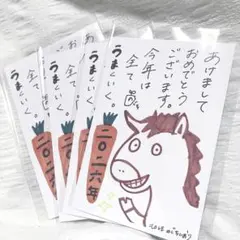 あけまして
おめでとう
ございます。
今年は
全て
うまくいく。
二〇二六年
全て
うまくいく。
うまくいく。
うまくいく。
二〇二六年